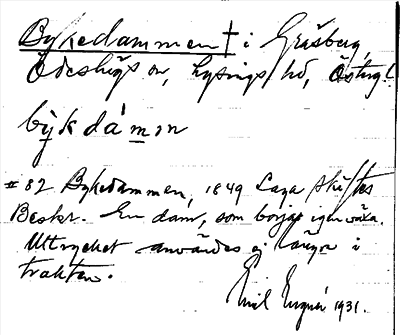 Bykedammen † i Gråberg,
Ödeshögs sn, Lysings hd, Östergl.
bỳkdámən
# 82 Bykedammen, 1849 Laga skiftes
Beskr. En dam, som börjar igenväxa.
Uttrycket användes ej längre i
trakten.
Emil 1931.